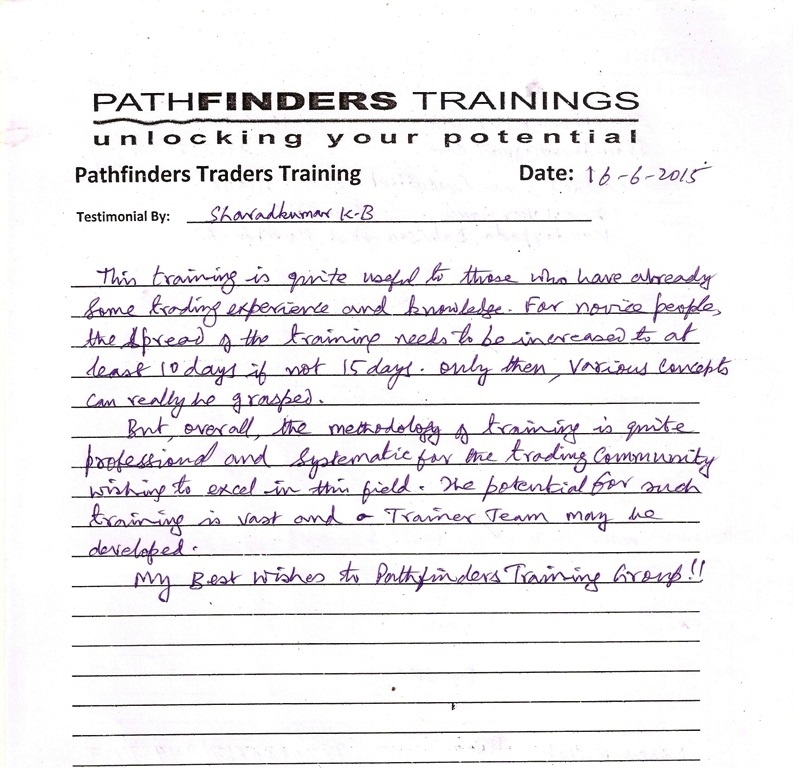 PATHFINDERS TRAININGS
unlocking your potential
Pathfinders Traders Training Date: 16-6-2015
Testimonial By: Sharadkumar K-B
This training is quite useful to those who have already
some trading experience and knowledge. For novice people,
the spread of the training needs to be increased to at
least 10 days if not 15 days. only then, various concepts
can really be grasped.
But, overall, the methodology of training is quite
professional and systematic for the trading Community
wishing to excel in this field. The potential for such
training is vast and a Trainer Team may be
developed.
My Best Wishes to Pathfinders Training Group!!